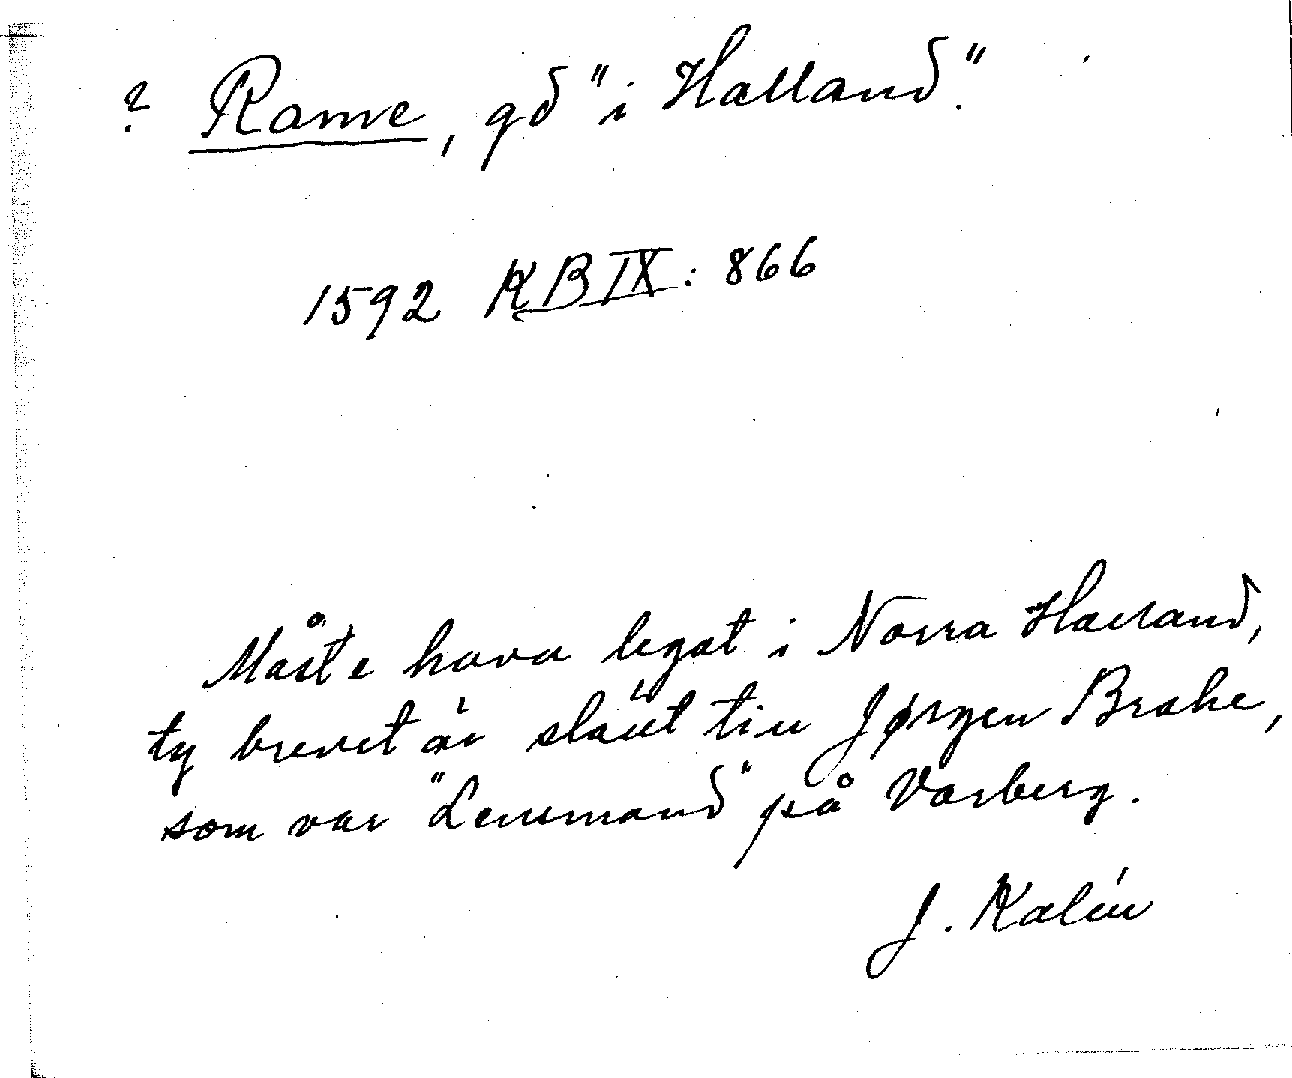 ? Rame, gd "i Halland".
1592 KB IX: 866
Måste hava legat i Norra Halland,
ty brevet är ställt till Jørgen Brahe,
som var "Lensmand" på Varberg.
J. Kalén